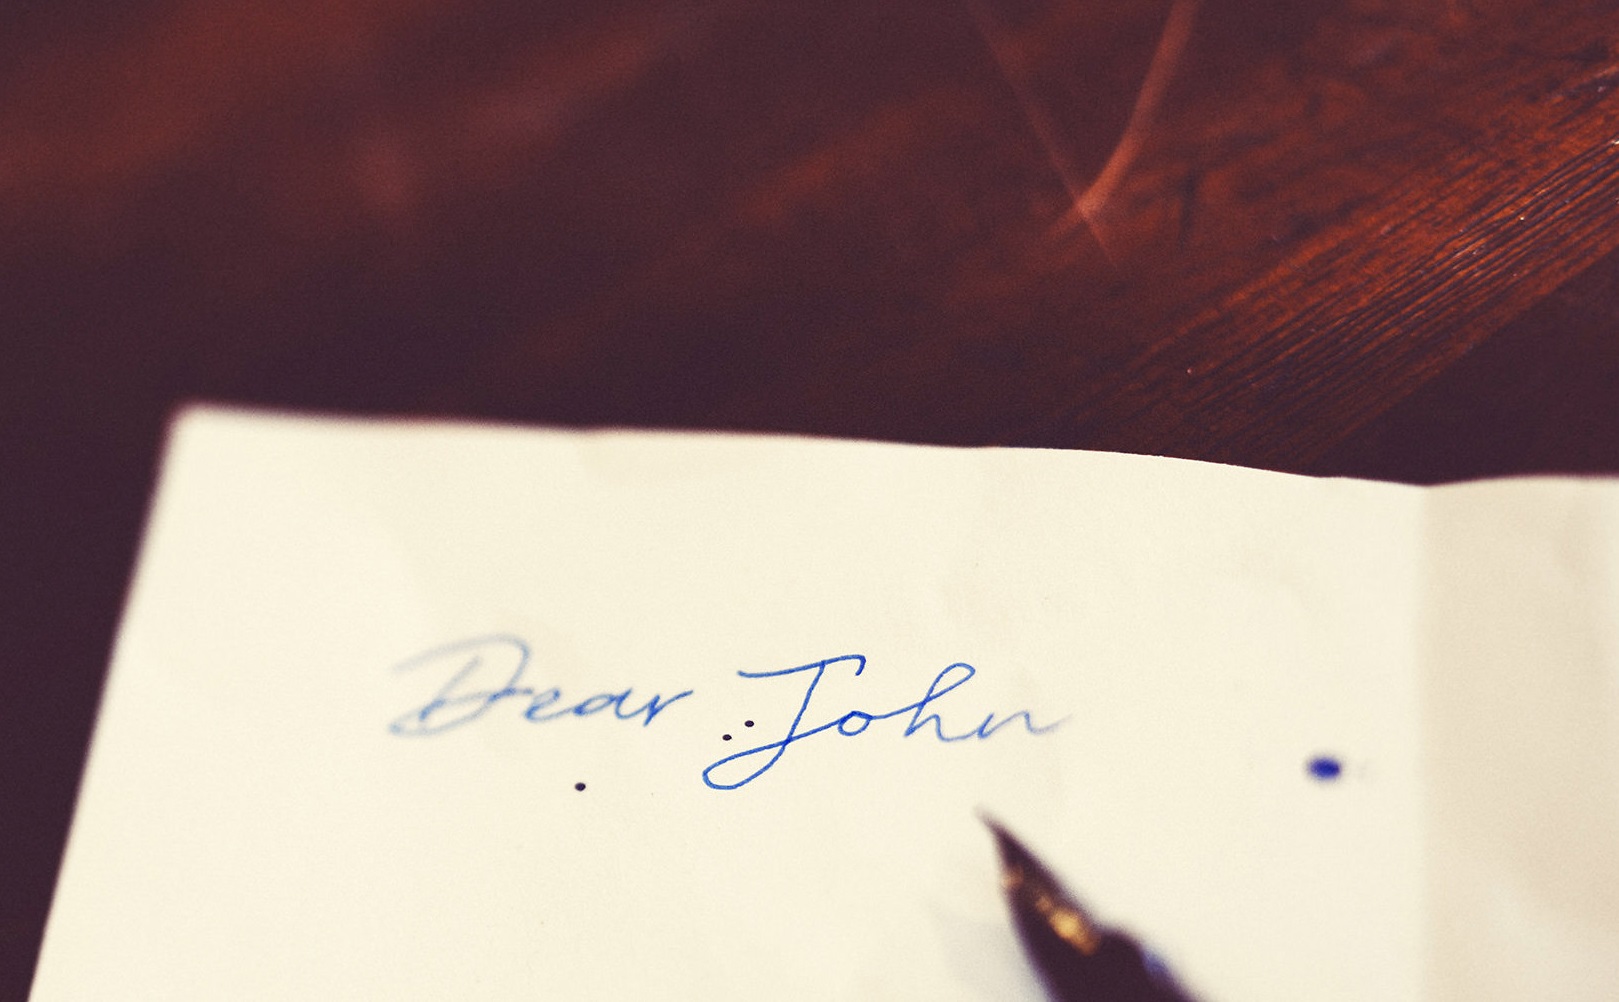 Dear John